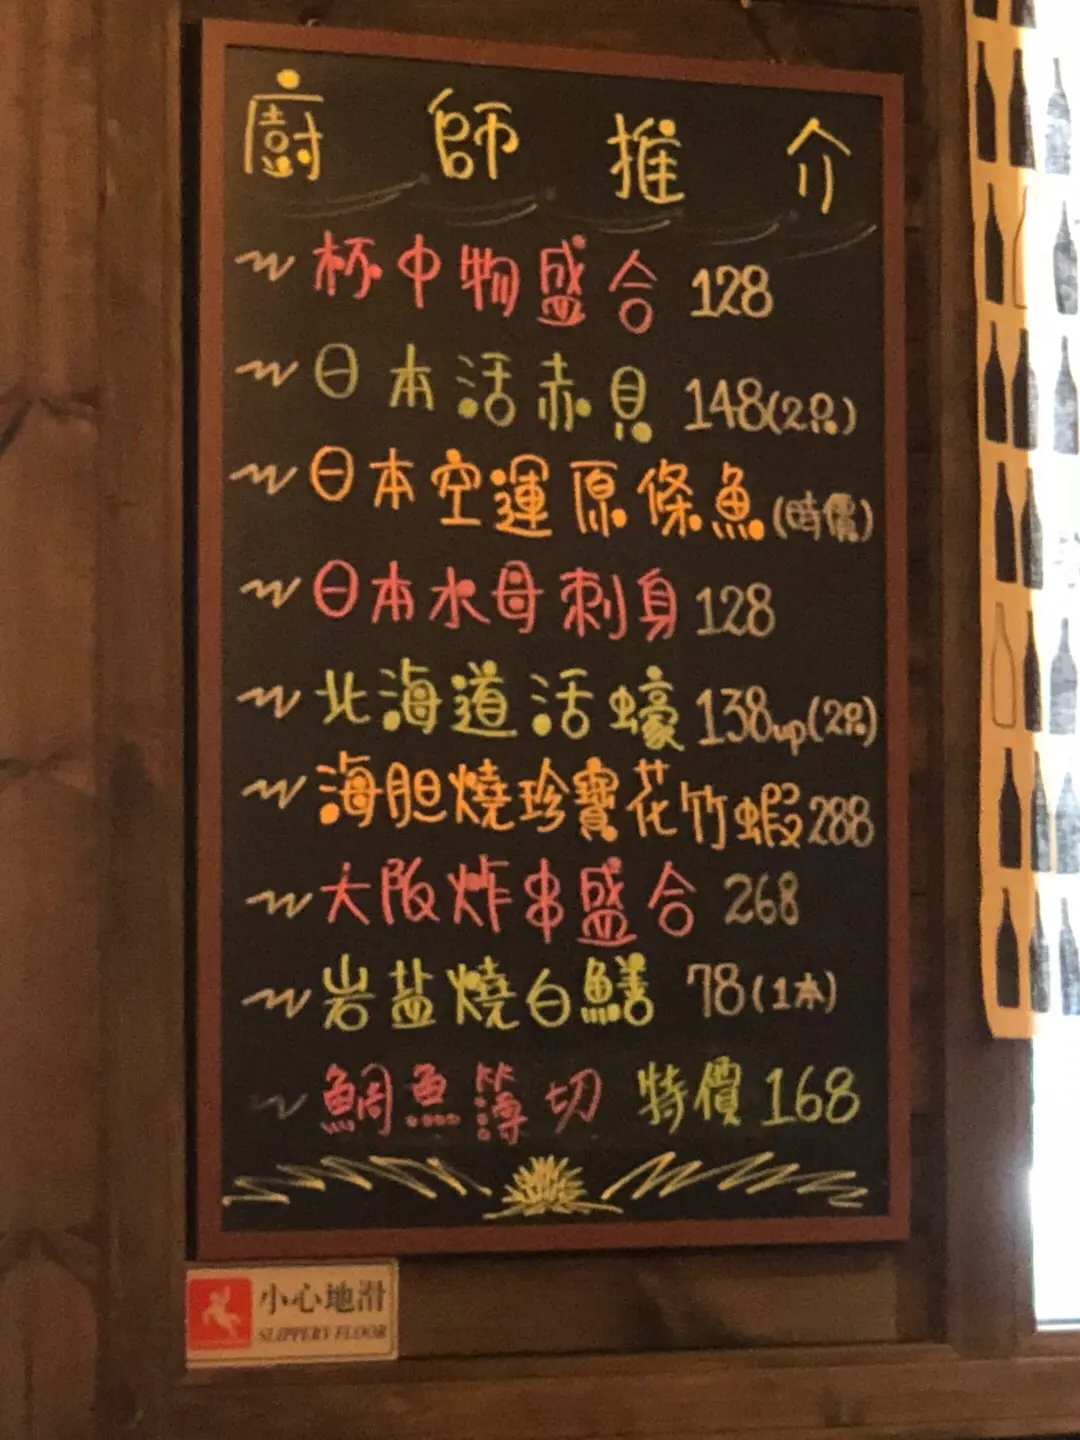 廚師推介
杯中物盛合 128
日本活赤貝 148(2只)
日本空運原條魚(時價)
日本水母刺身 128
北海道活蠔 138up(2只)
海胆燒珍寶花竹蝦 288
大阪炸串盛合 268
岩盐燒白鱔 78(1本)
鯛魚簿切 特價 168
小心地滑
SLIPPERY FLOOR